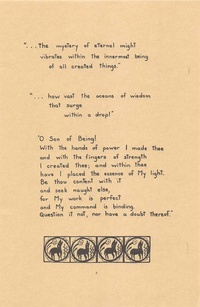 "...The mystery of eternal might
vibrates within the innermost being
of all created things."
"...how vast the oceans of wisdom
that surge
within a drop!"
"O Son of Being!
With the hands of power I made thee
and with the fingers of strength
I created thee; and within thee
have I placed the essence of My light.
Be thou content with it
and seek naught else,
for My work is perfect
and My command is binding.
Question it not, nor have a doubt thereof."